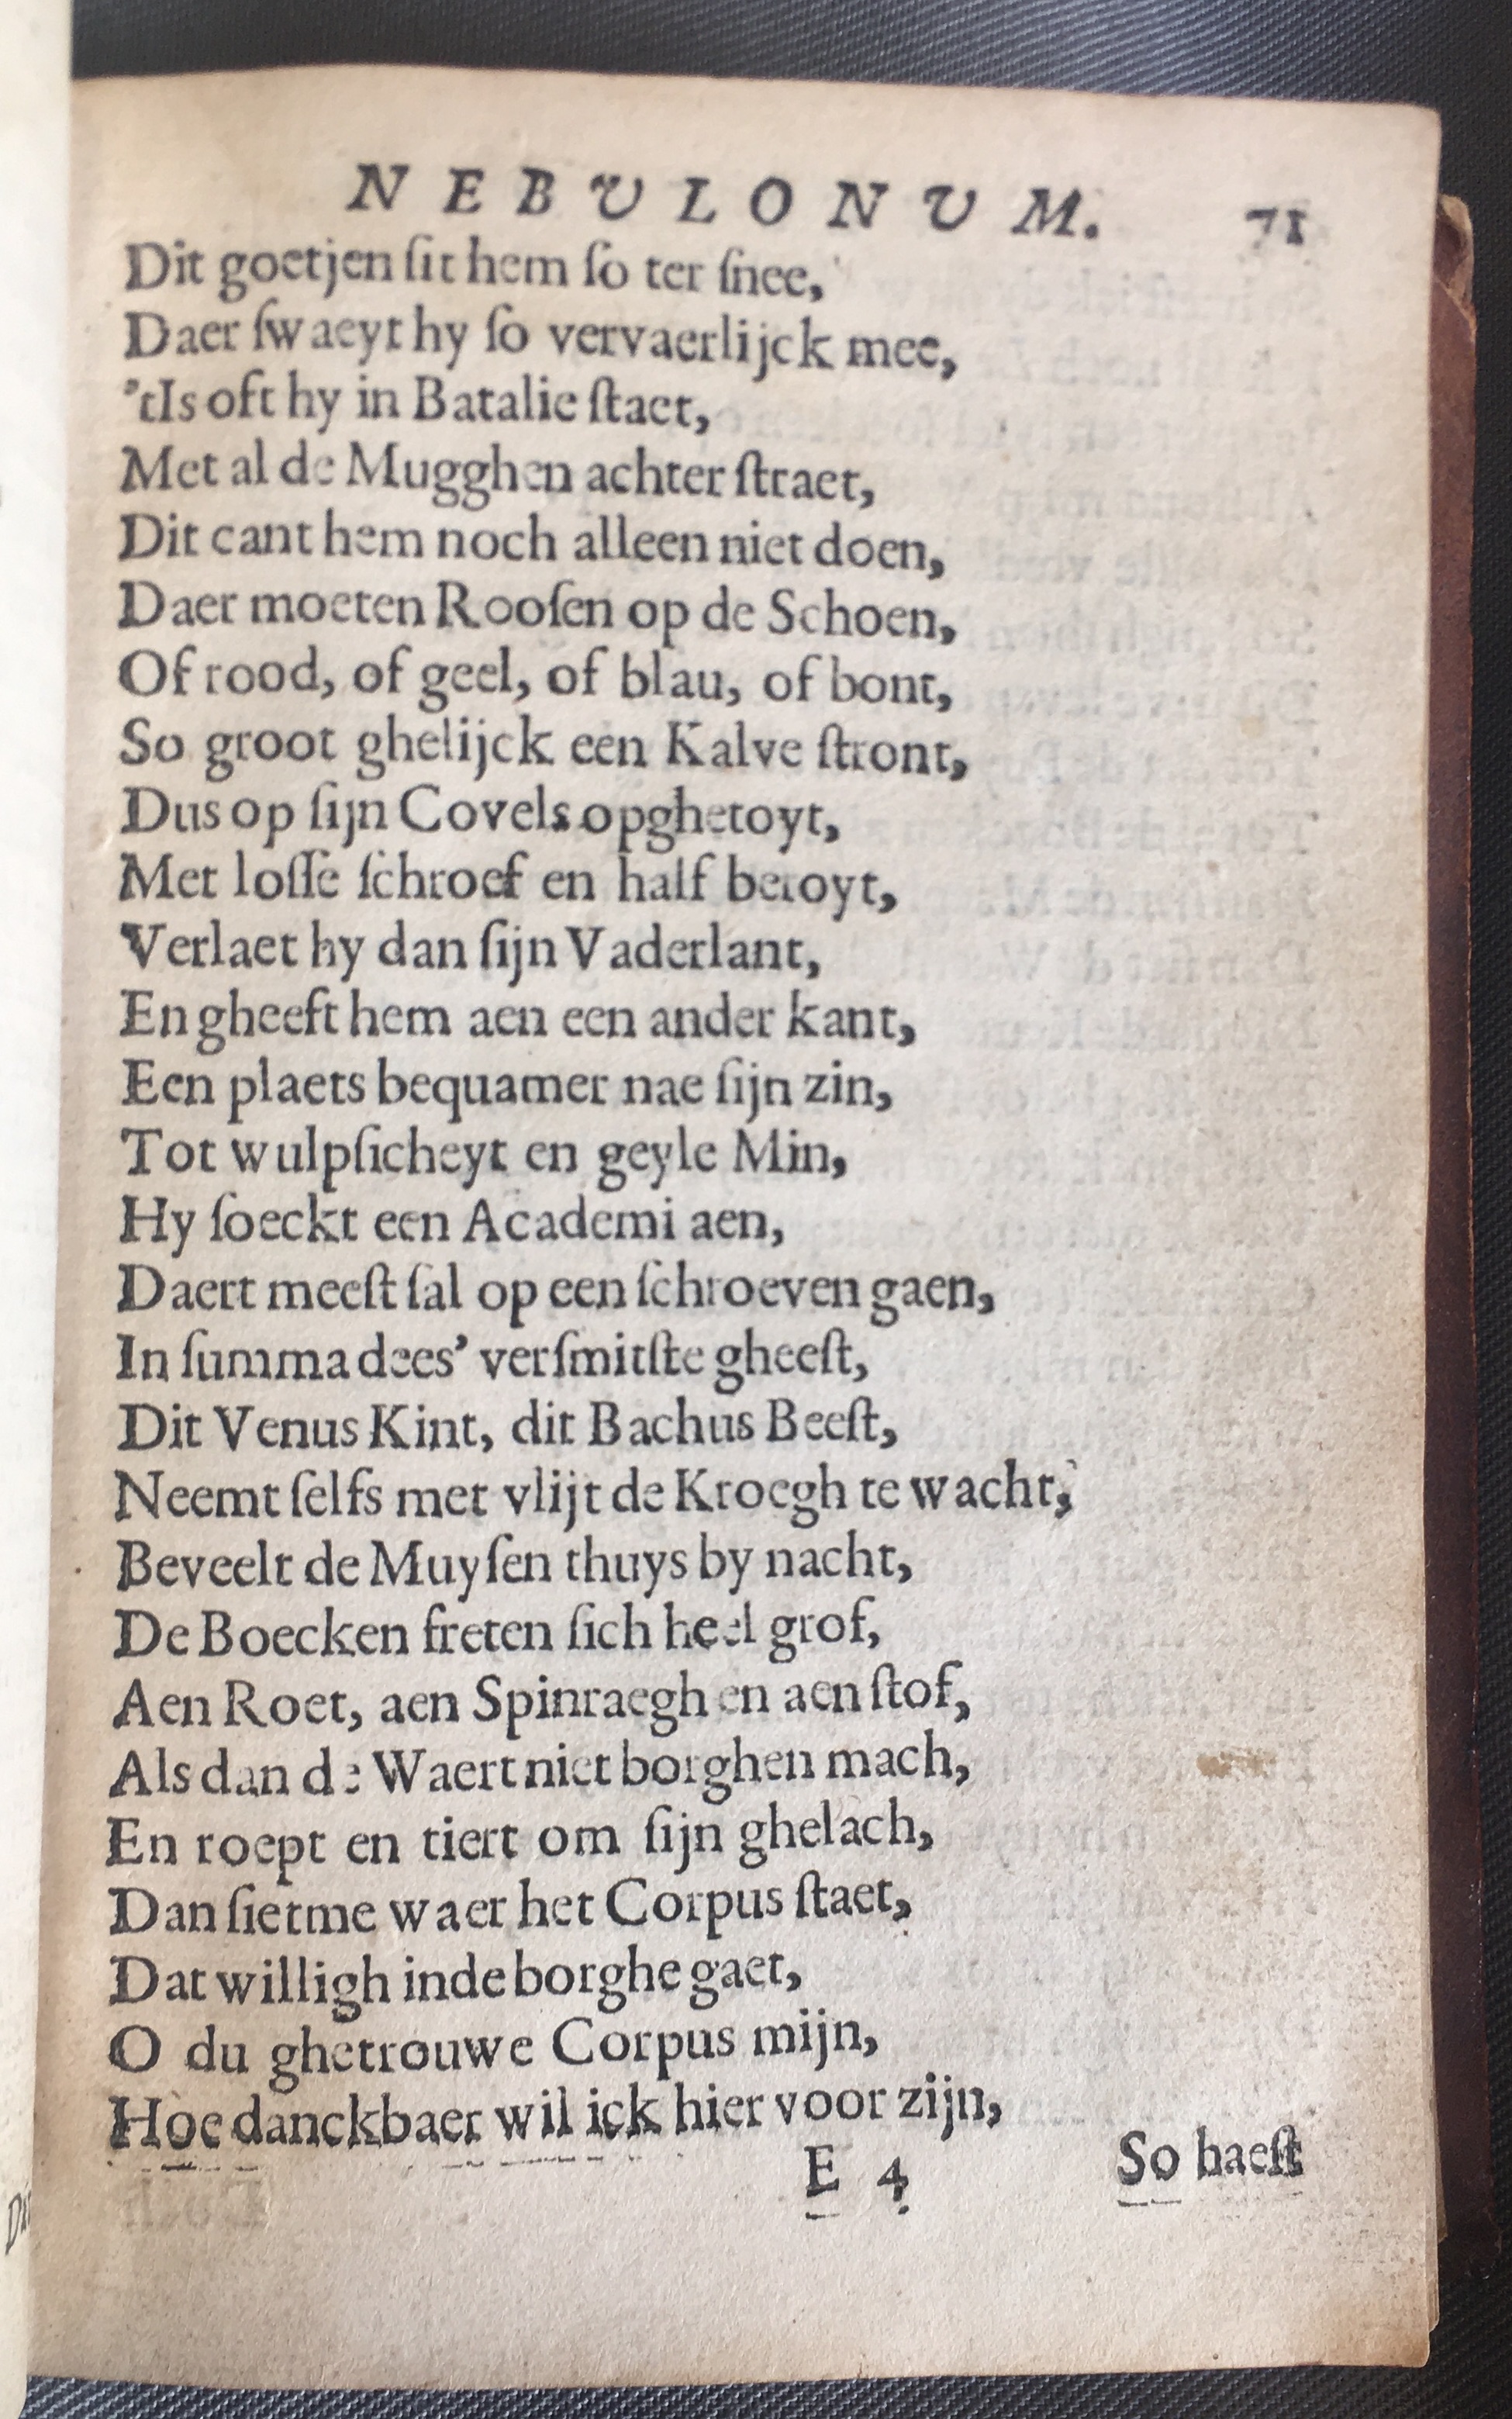 NEBULONUM. 71
Dit goetjen ſit hem ſo ter ſnee,
Daer ſwaeyt hy ſo vervaerlijck mee,
'tIs oft hy in Batalie ſtaet,
Met al de Mugghen achter ſtraet,
Dit cant hem noch alleen niet doen,
Daer moeten Rooſen op de Schoen,
Of rood, of geel, of blau, of bont,
So groot ghelijck een Kalve ſtront,
Dus op ſijn Covels opghetoyt,
Met loſſe ſchroef en half beroyt,
Verlaet hy dan ſijn Vaderlant,
En gheeft hem aen een ander kant,
Een plaets bequamer nae ſijn zin,
Tot wulpſicheyt en geyle Min,
Hy ſoeckt een Academi aen,
Daert meeſt ſal op een ſchroeven gaen,
In ſumma dees' verſmitſte gheeſt,
Dit Venus Kint, dit Bachus Beeſt,
Neemt ſelfs met vlijt de Kroegh te wacht,
Beveelt de Muyſen thuys by nacht,
De Boecken freten ſich heel grof,
Aen Roet, aen Spinraegh en aen ſtof,
Als dan de Waert niet borghen mach,
En roept en tiert om ſijn ghelach,
Dan ſietme waer het Corpus ſtaet,
Dat willigh inde borghe gaet,
O du ghetrouwe Corpus mijn,
Hoe danckbaer wil ick hier voor zijn,
E 4 So haeſt